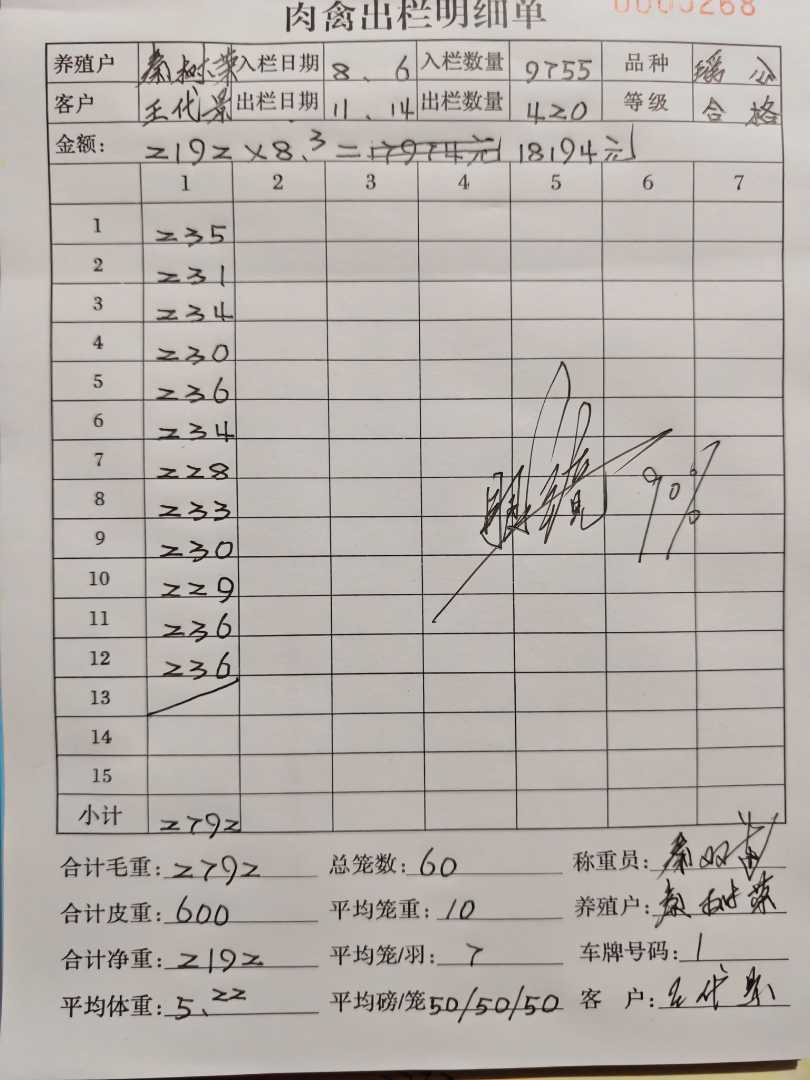 肉禽出栏明细单
0005268
养殖户 秦树荣 入栏日期 8.6 入栏数量 9755 品种 瑶公
客户 王代景 出栏日期 11.14 出栏数量 420 等级 合格
金额: 2192×8.3=17974元 18194元
1 2 3 4 5 6 7
1 235
2 231
3 234
4 230
5 236
6 234
7 228
8 233
9 230
10 229
11 236
12 236
13
14
15
90%
小计 2792
合计毛重: 2792 总笼数: 60 称重员: 秦双
合计皮重: 600 平均笼重: 10 养殖户: 秦树荣
合计净重: 2192 平均笼/羽: 7 车牌号码: 1
平均体重: 5.22 平均磅/笼 50/50/50 客 户: 王代景